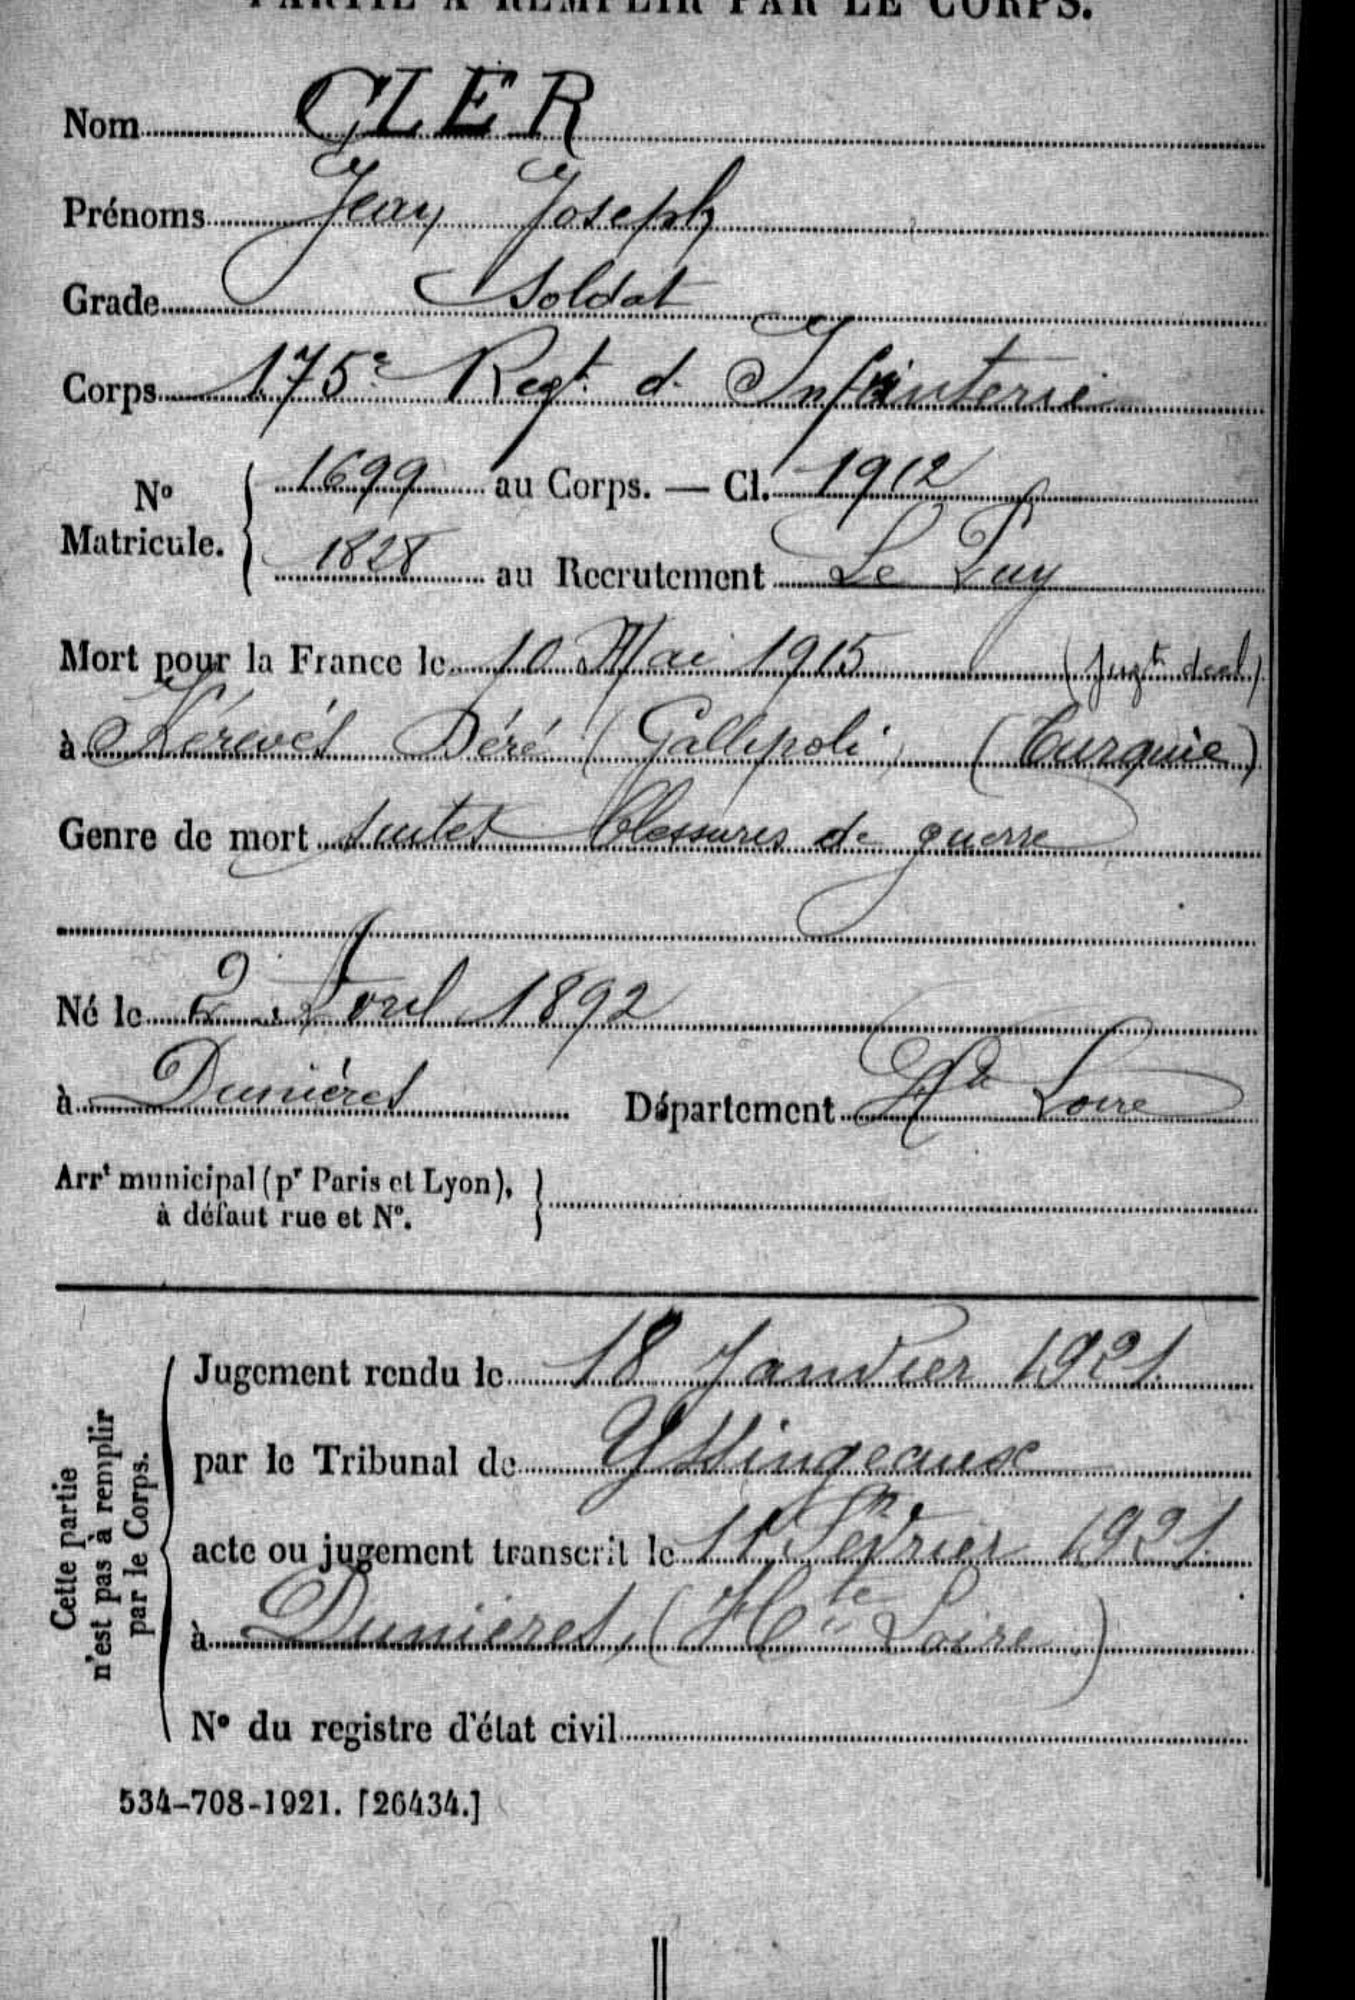 PARTIE A REMPLIR PAR LE CORPS.
Nom CLER
Prénoms Jean Joseph
Grade Soldat
Corps 175e Regt. d'Infanterie
No Matricule. { 1699 au Corps. — Cl. 1912
1828 au Recrutement Le Puy
Mort pour la France le 10 Mai 1915 (jugt. decl.)
à Kérévés Déré (Gallipoli) (Turquie)
Genre de mort suites blessures de guerre
Né le 2 Avril 1892
à Dunières Département Hte Loire
Arrt municipal (pr Paris et Lyon), à défaut rue et No. }
Cette partie n'est pas à remplir par le Corps.
Jugement rendu le 18 Janvier 1921
par le Tribunal de Yssingeaux
acte ou jugement transcrit le 11 Février 1921
à Dunières, (Hte Loire)
No du registre d'état civil
534-708-1921. [26434.]